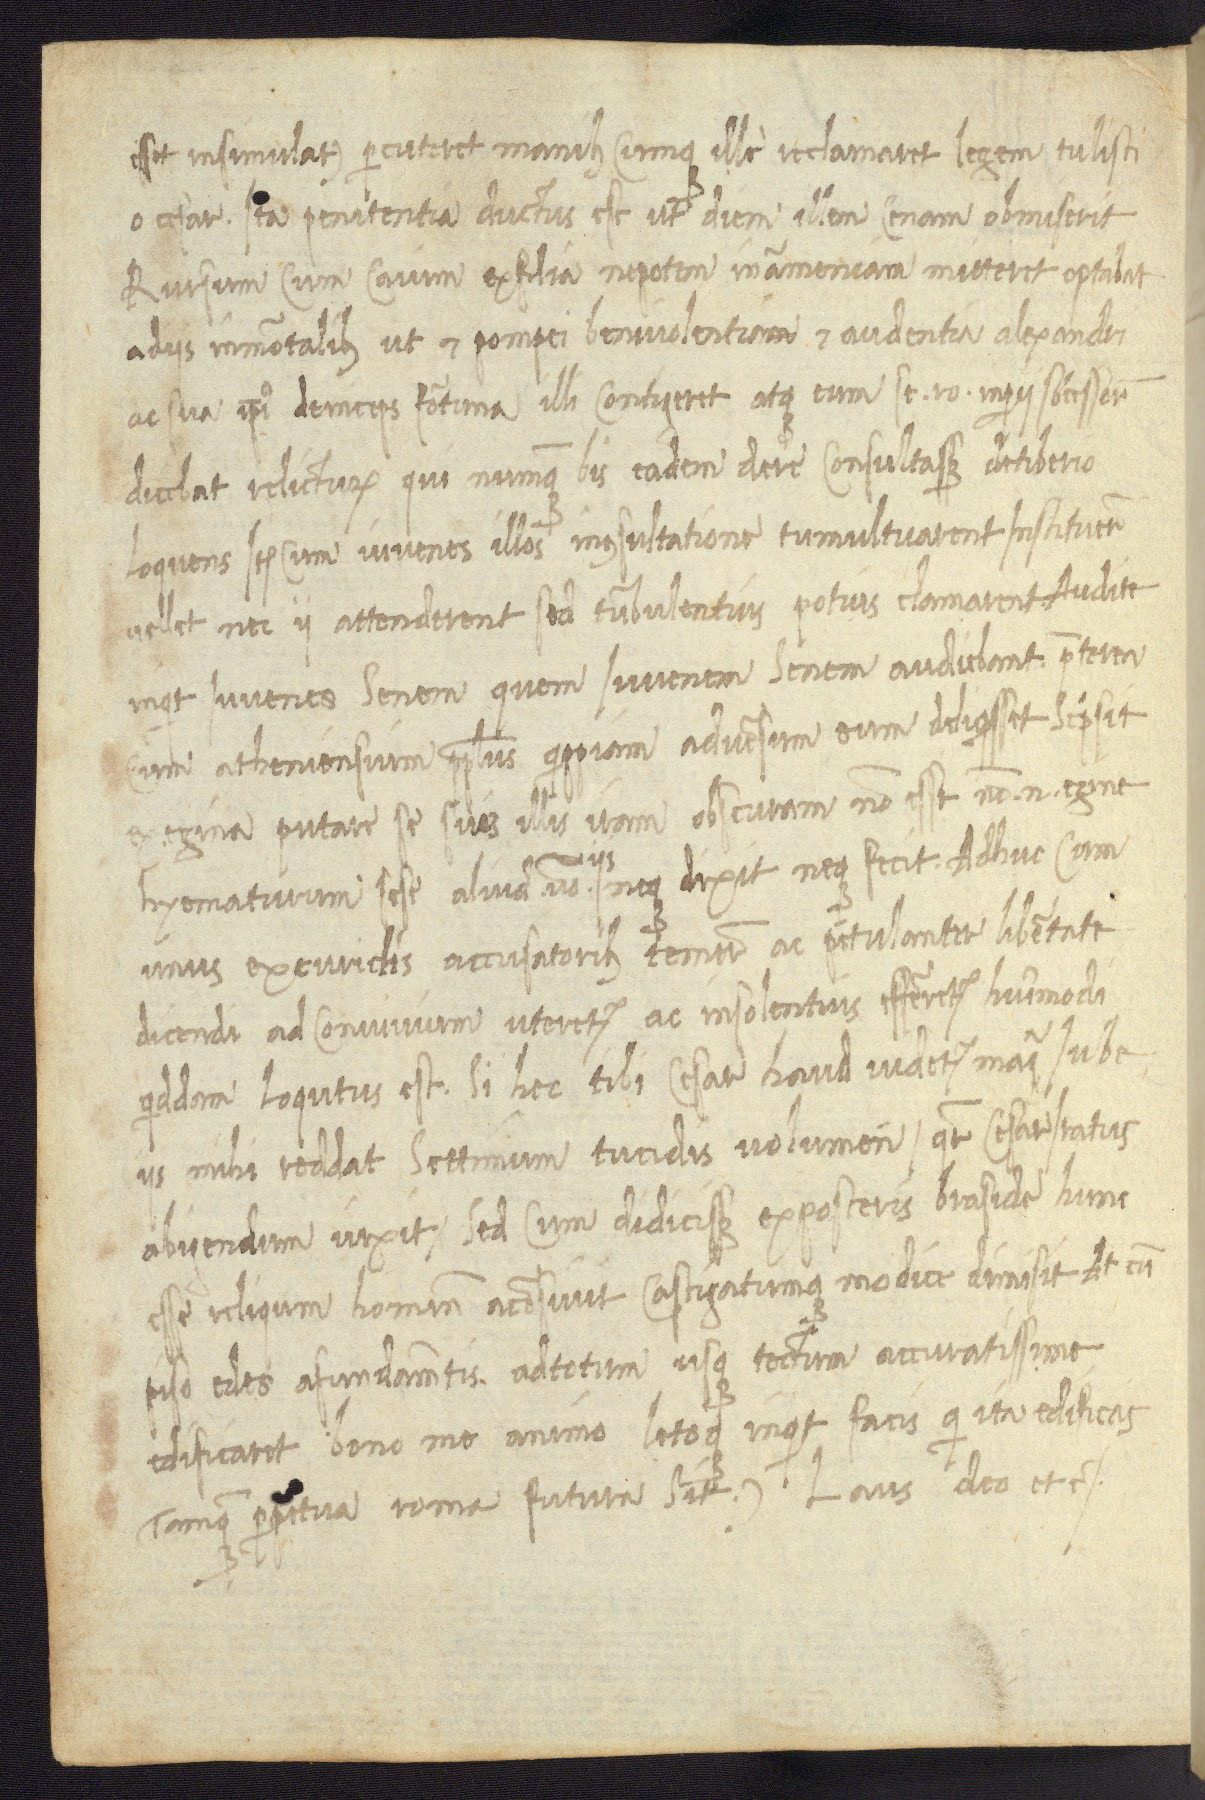 esset insimulat9 ꝑcuteret manibꝫ Cumqꝫ ille reclamaret legem tulisti
o cesar. Ita penitentia ductus est utqꝫ diem illem Cenam obmiserit
Rursum Cum Caium ex filia nepotem in ameniam mitteret optabat
adiis inmõtalibꝫ ut ⁊ pompei beniuolentiam ⁊ audentia alexandri
ac sua ipi9 deinceps fõtuna illi Contigeret atqꝫ eum se. ro. imperij sõcessorẽ
dicebat relicturꝝ qui numqꝫ bis eadem de re Consultassꝫ de tiberio
loquens Cum iuuenes illos insultatione tumultuarent Instituerẽ
uellet nec ij attenderent sed tũbulentius potius clamarent. Audite
inqt Iuuenes Senem quem Iuuenem Senem audiebant. p̃terea
Cum atheniensium pplus qippiam aduẽsum eum deliqsset Scripsit
ex egina putare se suis illis iram obscuram nõ esse nõ. n. egine
hyematurum sese aliud uõ. iis neqꝫ dixit neqꝫ fecit. Adhuc Cum
unus ex euriclis accusatoribꝫ temerẽ ac petulanter libẽtate
dicendi ad Conuiuium uteretꝝ ac insolentius efferretꝝ huiõmodi
qiddam loqutus est. Si hec tibi Cesar haud uidetꝝ maiᷓ Iube
iis mihi reddat Settimum tucidis uolumen / qrẽ Cesar Iratus
abigendum iuxit / Sed Cum didicissꝫ ex posteris braside hunc
esse reliqum hominẽ acõsiuit Castigatumqꝫ modice dimisit At cũ
piso edes afundamẽtis. ad totum usqꝫ tectum accuratissime
edificaret bono me animo letoqꝫ inqit facis qi ita edificas
Tamqꝫ ꝑpetua roma futura Sit. Laus deo et c̃.